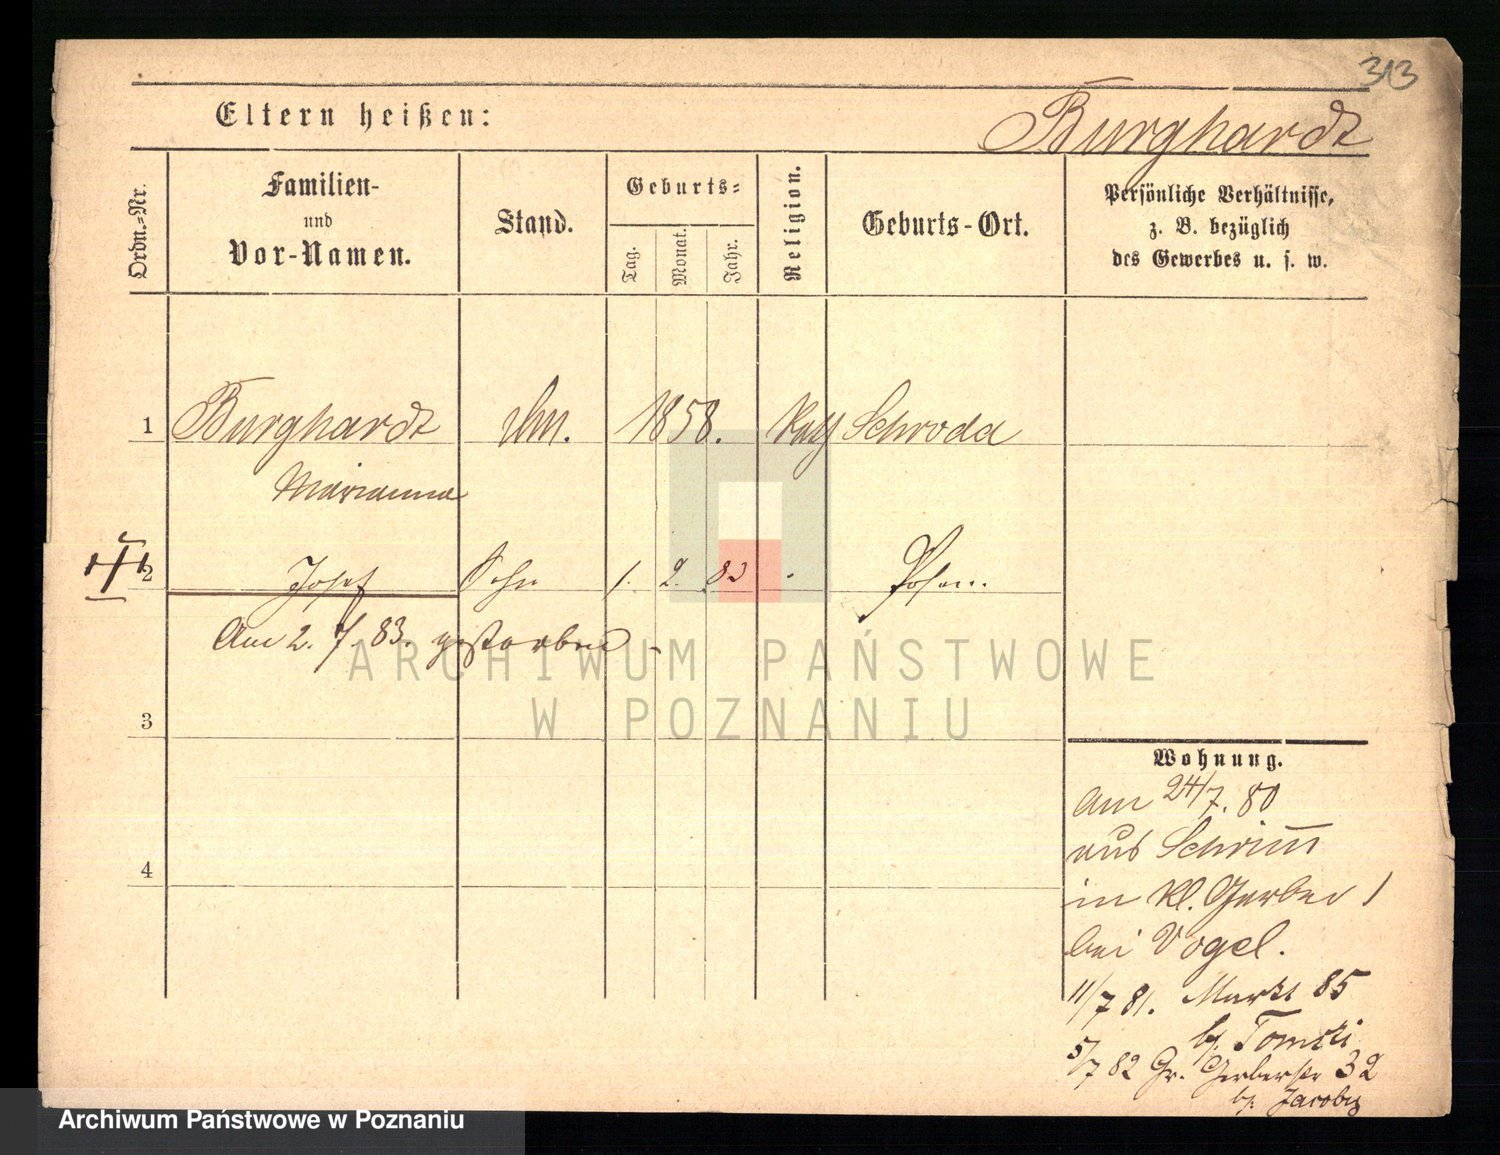 313
Eltern heißen:
Burghardt
Ordn.-Nr.
Familien-
und
Vor-Namen.
Stand.
Geburts-
Tag.
Monat.
Jahr.
Religion.
Geburts-Ort.
Persönliche Verhältnisse,
z. B. bezüglich
des Gewerbes u. s. w.
1 Burghardt 1858. kath Schroda
Marianna
2 Josef Sohn 1. 2. 83 Posen.
Am 2. 7. 83. gestorben
ARCHIWUM PAŃSTWOWE
W POZNANIU
3
4
Wohnung.
Am 24/7. 80
aus Schrimm
in Kl. Gerber 1
bei Vogel.
11/7 81. Markt 85
b/. Tomski
5/7 82 Gr. Gerberstr 32
b/. Jacoby
Archiwum Państwowe w Poznaniu